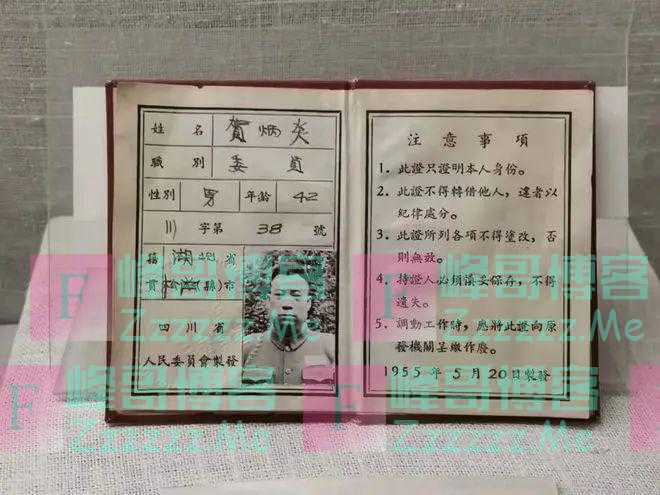 姓名 賀炳炎
職別 委員
性別 男 年齡 42
川字第 38 號
籍貫 湖北省
(縣)市
四川省
人民委員會製發
注意事項
1. 此證只證明本人身份。
2. 此證不得轉借他人，違者以
紀律處分。
3. 此證所列各項不得塗改，否
則無效。
4. 持證人必須謹妥保存，不得
遺失。
5. 調動工作時，應將此證向原
發機關呈繳作廢。
1955 年 5 月 20 日製發
F 峰哥博客
Zzzzzz.Me
F 峰哥博客
Zzzzzz.Me
F 峰哥博客
Zzzzzz.Me
F 峰哥博客
Zzzzzz.Me